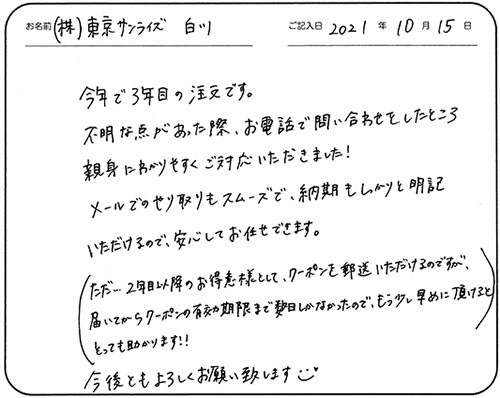 お名前 (株)東京サンライズ 白川 ご記入日 2021 年 10 月 15 日
今年で3年目の注文です。
不明な点があった際、お電話で問い合わせをしたところ
親身にわかりやすくご対応いただきました!
メールでのやり取りもスムーズで、納期もしっかりと明記
いただけるので、安心してお任せできます。
(ただ…2年目以降のお得意様として、クーポンを郵送いただけるのですが、
届いてからクーポンの有効期限まで数日しかなかったので、もう少し早めに頂けると
とっても助かります!!)
今後ともよろしくお願い致します